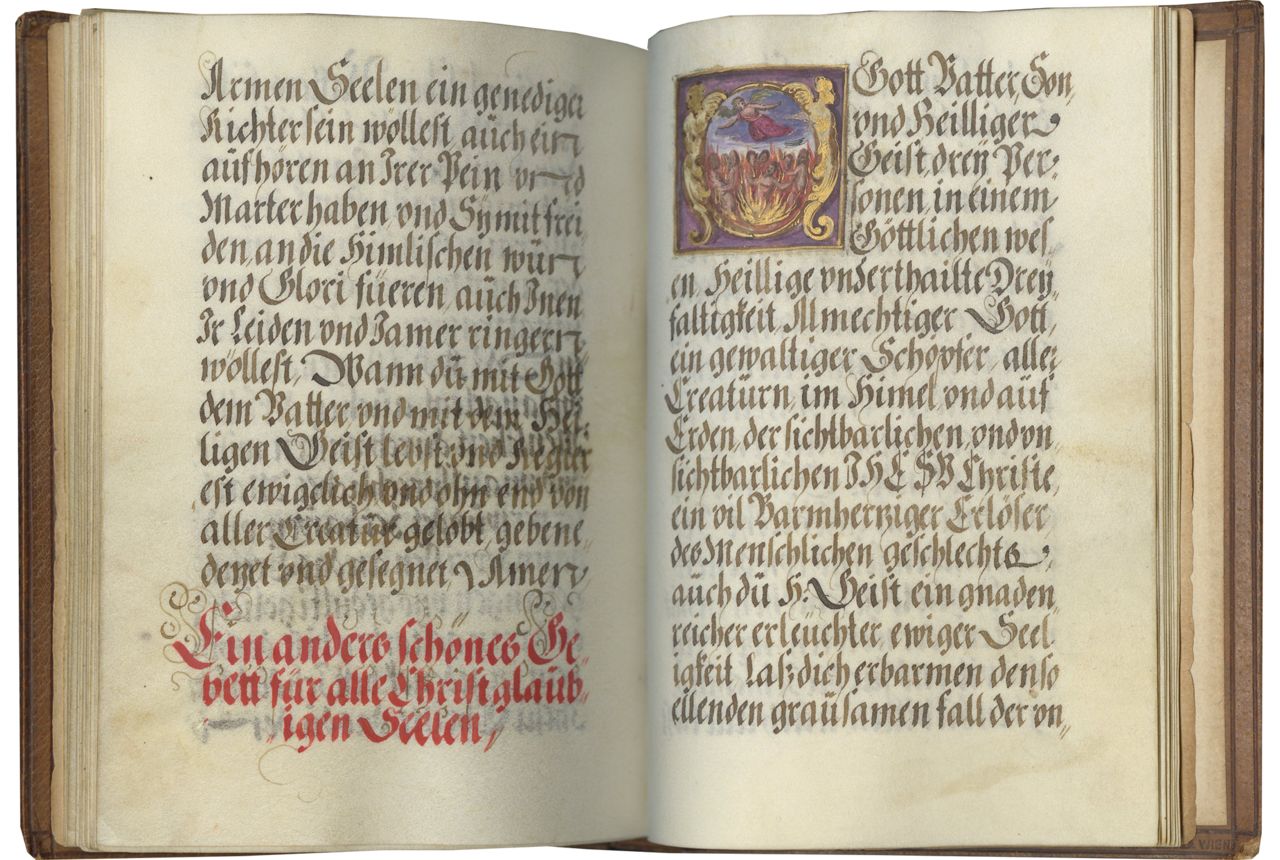 Armen Seelen ein genediger
Richter sein wöllest, auch ein
aufhören an Irer Pein vnd
Marter haben, vnd Sÿ mit frei„
den, an die Himlischen würn
vnd Glori füeren, auch Inen
Ir Leiden vnd Jamer ringern
wöllest, Wann dū mit Gott
dem Vatter vnd mit dem Hei„
ligen Geist lebst vnd Regier
est ewigclich vnd ohn end von
aller Creatūr gelobt, gebene„
deyet vnd gesegnet, Amen,
Ein anders schönes Ge„
bett für alle Christglaūb„
igen Seelen,
O Gott Vatter, Son,
vnd Heilliger
Geist, dreÿ Per„
sonen in einem
Göttlichen wes„
en, Heillige vnderthailte Dreÿ„
faltigkeit, Almechtiger Gott,
ein gewaltiger Schöpfer aller
Creatūrn, im Himel, vnd auf
Erden, der sichtbarlichen, vnd vn„
sichtbarlichen IHESV Christe,
ein vil Barmhertziger Erlöser
des Menschlichen geschlechts,
auch dū H: Geist ein gnaden„
reicher erleūchter, ewiger Seel„
igkeit Lasz dich erbarmen den so
ellenden graūsamen fall der vn„